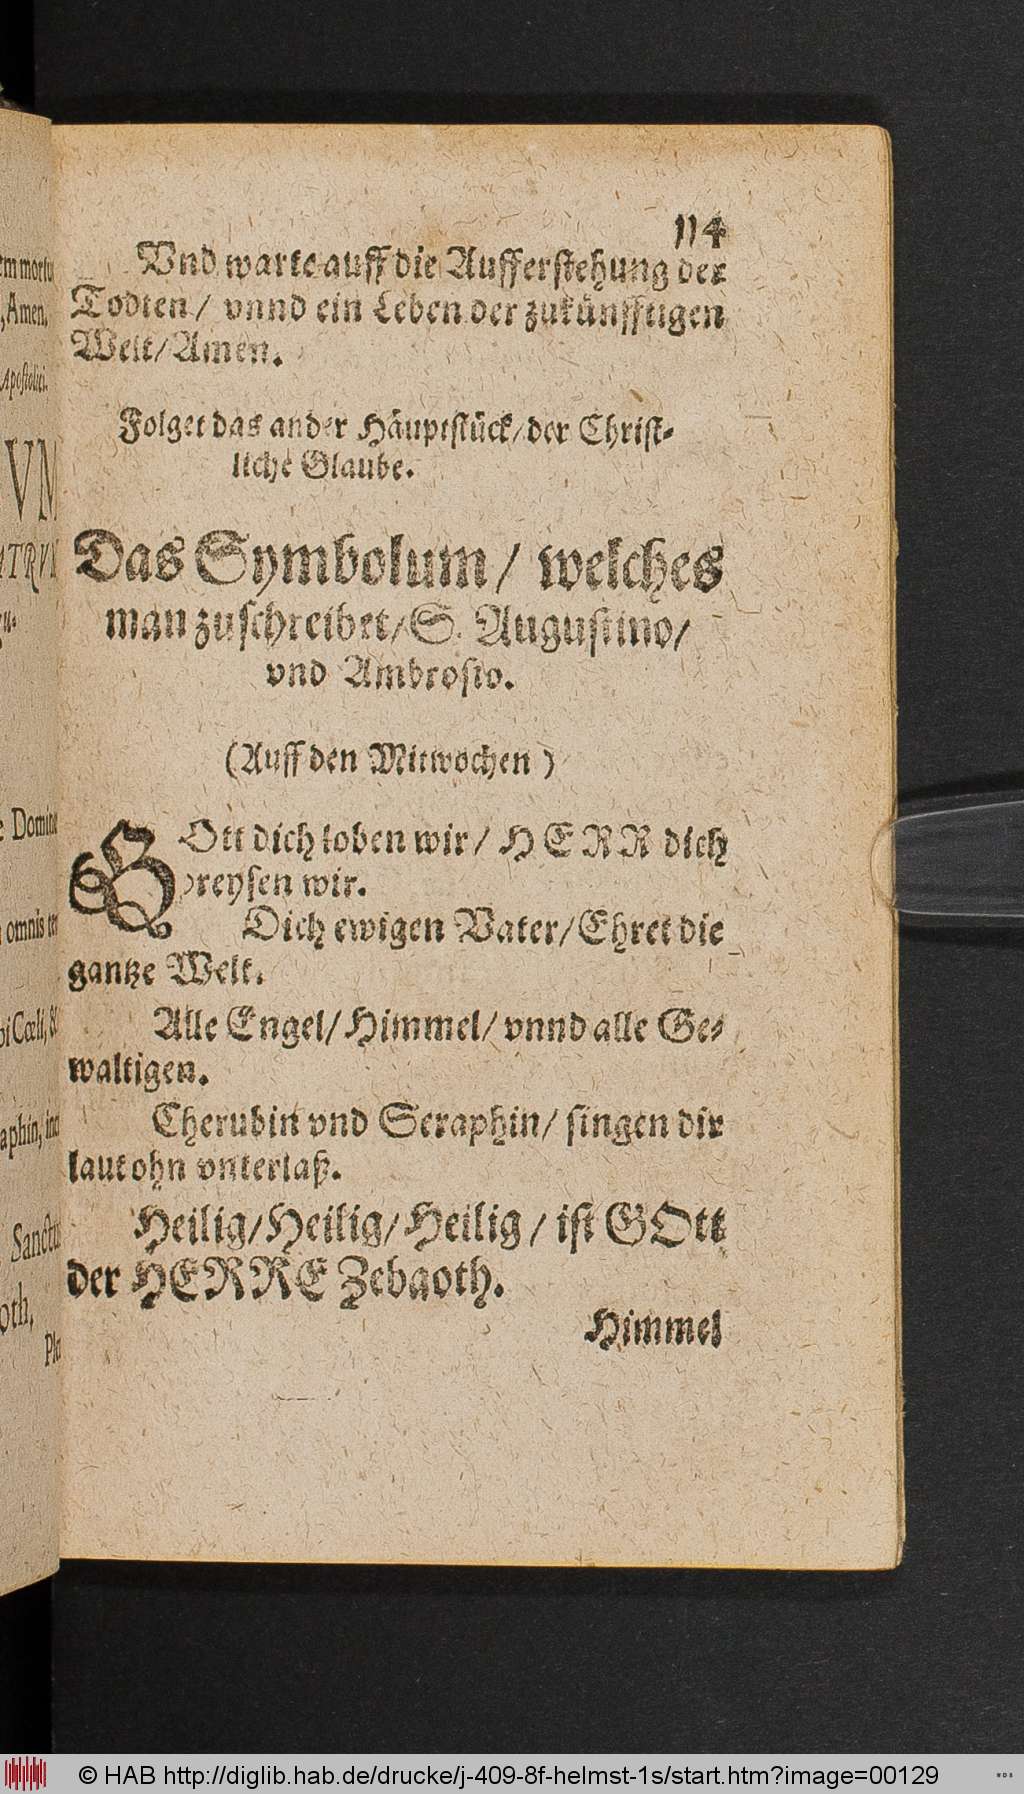 114
Vnd warte auff die Aufferstehung der
Todten / vnnd ein Leben der zukünfftigen
Welt / Amen.
Folget das ander Häuptstück / der Christ-
liche Glaube.
Das Symbolum / welches
man zuschreibet / S. Augustino /
vnd Ambrosio.
(Auff den Mitwochen)
GOtt dich loben wir / HERR dich
preysen wir.
Dich ewigen Vater / Ehret die
gantze Welt.
Alle Engel / Himmel / vnnd alle Ge-
waltigen.
Cherubin vnd Seraphin / singen dir
laut ohn vnterlaß.
Heilig / Heilig / Heilig / ist GOtt
der HERRE Zebaoth.
Himmel
Amen,
Apostolici.
VM
Domine
omnis
Cœli, &
Sanctus
© HAB http://diglib.hab.de/drucke/j-409-8f-helmst-1s/start.htm?image=00129